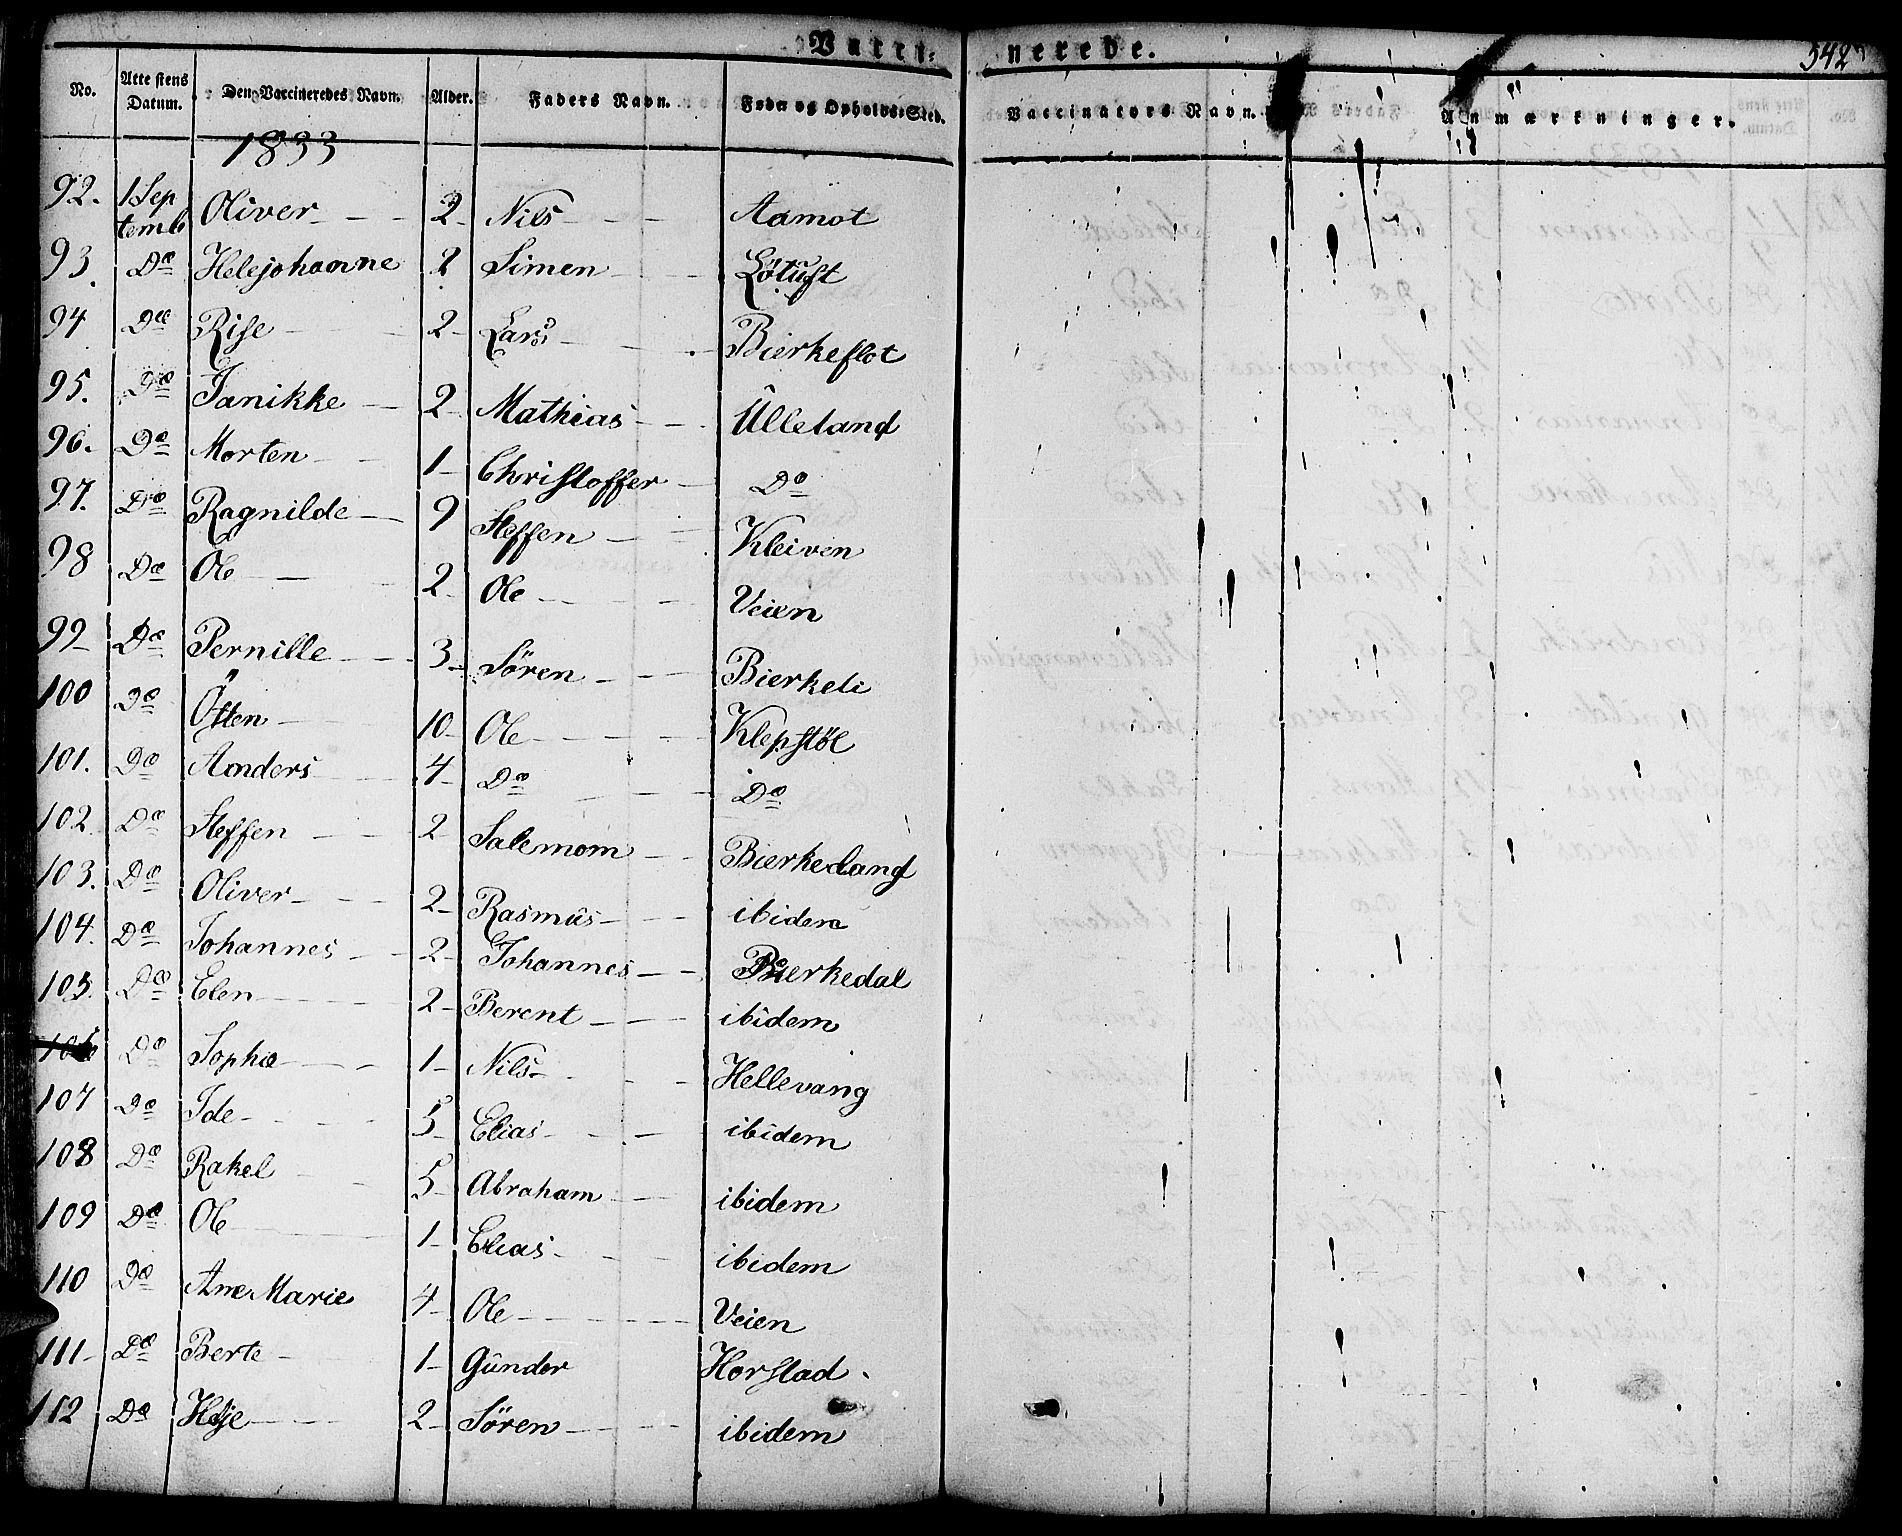 Vacci- nerede. 542
No. Attestens Datum. Den Vaccineredes Navn. Alder. Faders Navn. Føde og Opholds-Sted. Vaccinators Navn. Anmærkninger.
1833
92. 1 Sep temb Oliver 2 Nils Aamot
93. Do Helejohanne 2 Simen Løtuft
94 Do Rise 2 Lars Bierkeflot
95. Do Janikke 2 Mathias Ulleland
96. Do Morten 1 Christoffer Do
97. Do Ragnilde 9 Steffen Kleiven
98 Do Ole 2 Ole Veien
99 Do Pernille 3 Søren Bierkeli
100 Do Østen 10 Ole Klepstøl
101. Do Anders 4 Do Do
102 Do Steffen 2 Salemom Bierkeland
103. Do Oliver 2 Rasmus ibidem
104. Do Johannes 2 Johannes Bierkedal
105. Do Elen 2 Berent ibidem
106 Do Sophie 1 Nils Hellevang
107 Do Ide 5 Elias ibidem
108 Do Rakel 5 Abraham ibidem
109 Do Ole 1 Elias ibidem
110 Do Ane Marie 4 Ole Veien
111 Do Berte 1 Gunder Horstad
112 Do Helje 2 Søren ibidem